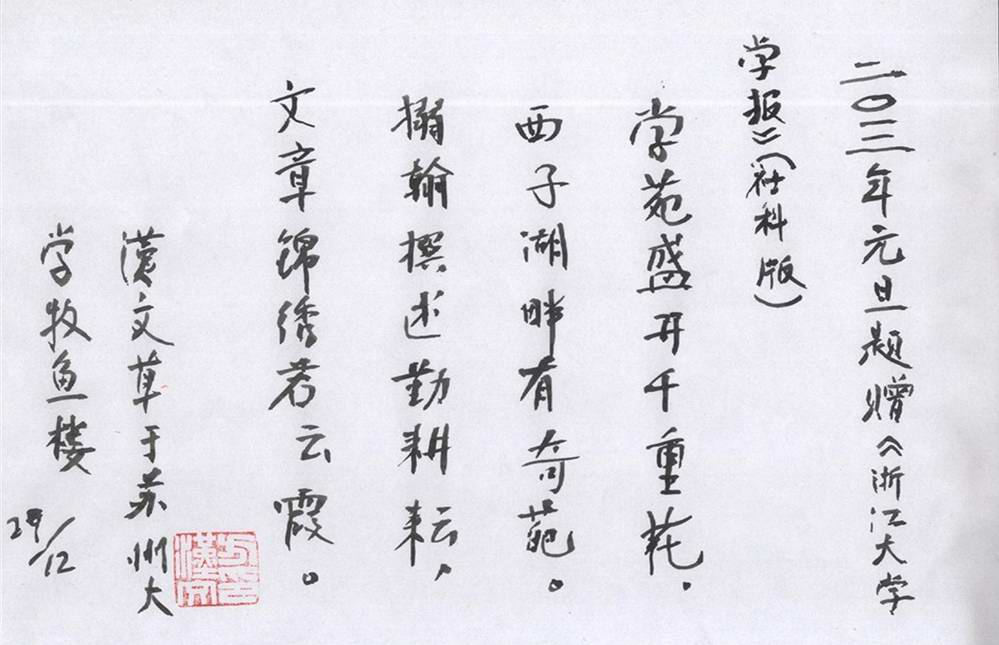 二〇〇三年元旦题赠《浙江大学
学报》（社科版）
学苑盛开千重花，
西子湖畔有奇葩。
搦翰撰述勤耕耘，
文章锦绣若云霞。
汉文草于苏州大
学牧鱼楼
29/12